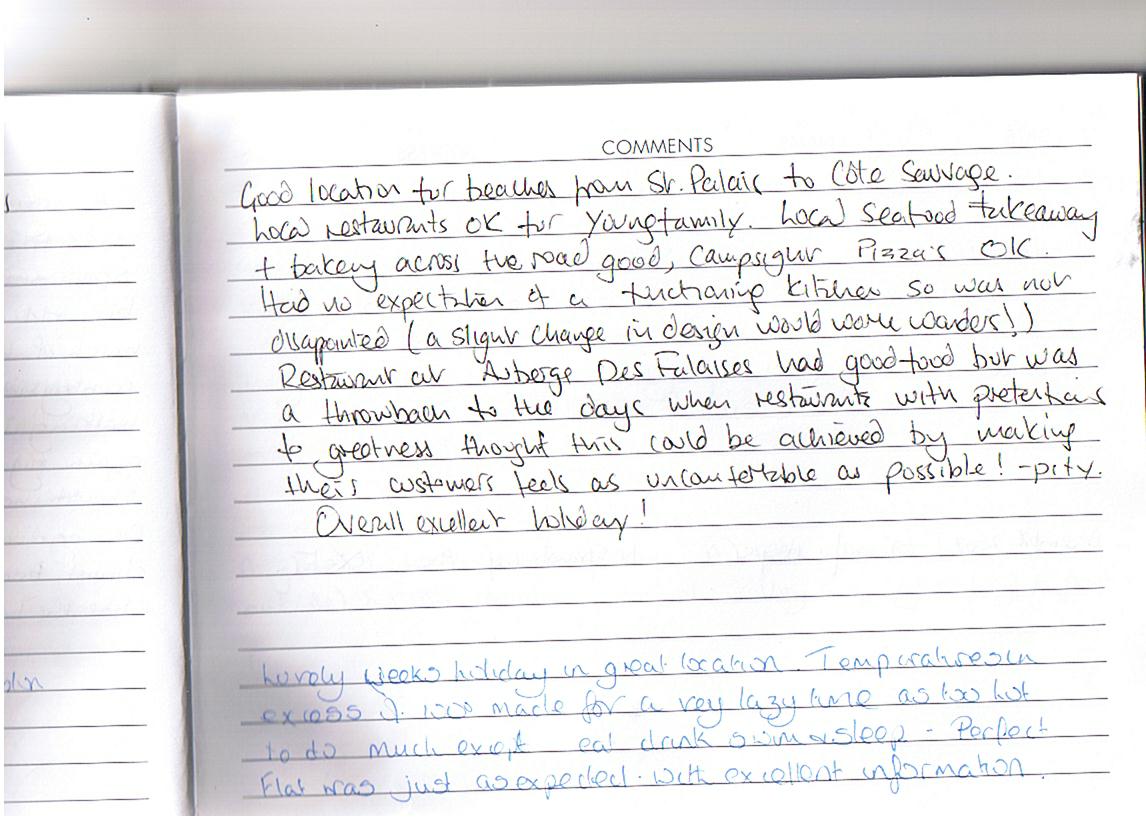 COMMENTS
Good location for beaches from St. Palais to Côte Sauvage.
Local restaurants OK for young family. Local Seafood takeaway
+ bakery across the road good, Campsight Pizza's OK.
Had no expectation of a functioning kitchen so was not
dissapointed (a slight change in design would work wonders!!)
Restaurant at Auberge Des Falaises had good food but was
a throwback to the days when restaurants with pretentions
to greatness thought this could be achieved by making
their customers feels as uncomfortable as possible! - pity.
Overall excellent holiday!
Lovely weeks holiday in great location. Temperatures in
excess of 100 made for a very lazy time as too hot
to do much except eat drink swim & sleep - Perfect
Flat was just as expected. with excellent information.